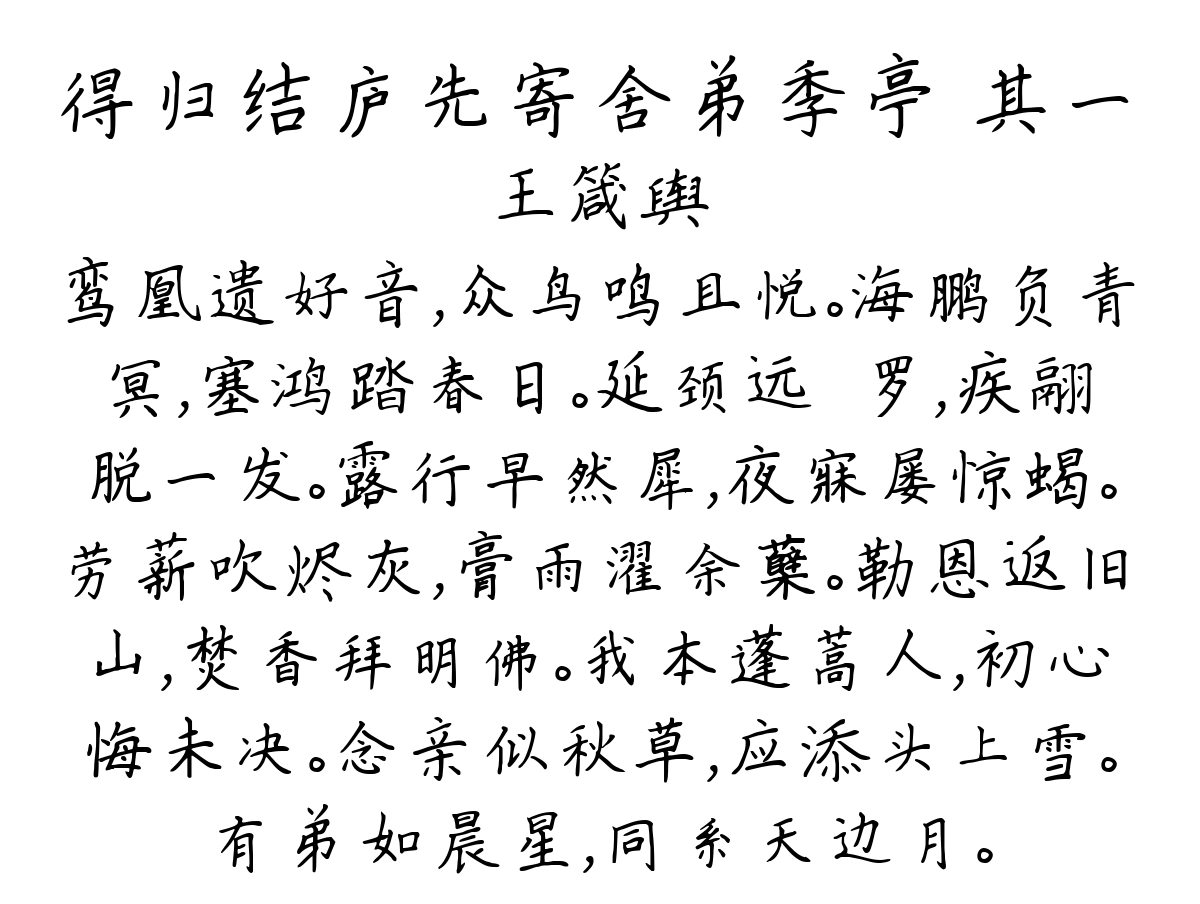 得归结庐先寄舍弟季亭 其一
王箴舆
鸾凰遗好音,众鸟鸣且悦。海鹏负青
冥,塞鸿踏春日。延颈远 罗,疾翮
脱一发。露行早然犀,夜寐屡惊蝎。
劳薪吹烬灰,膏雨濯余蘖。勒恩返旧
山,焚香拜明佛。我本蓬蒿人,初心
悔未决。念亲似秋草,应添头上雪。
有弟如晨星,同系天边月。